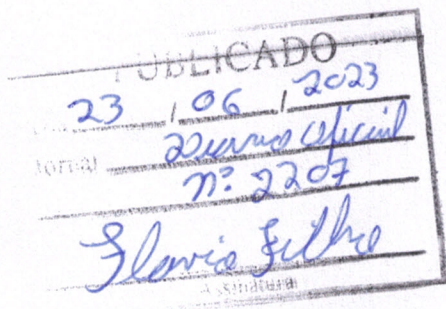 PUBLICADO
23 / 06 / 2023
Jornal Diário Oficial
nº 2207
Flavio Filho
Assinatura